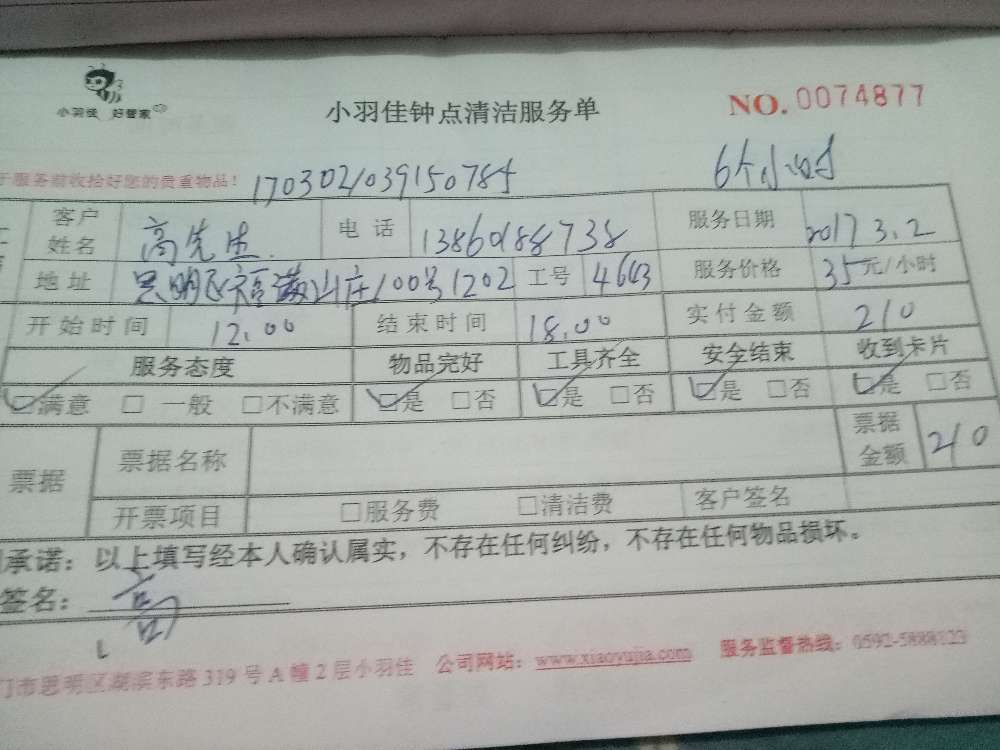 小羽佳 好管家
小羽佳钟点清洁服务单
NO. 0074877
于服务前收拾好您的贵重物品！ 170302103915078 6个小时
客户姓名 高先生 电话 13860188738 服务日期 2017 3.2
地址 思明区福满山庄100号1202 工号 4643 服务价格 35元/小时
开始时间 12.00 结束时间 18.00 实付金额 210
服务态度 物品完好 工具齐全 安全结束 收到卡片
☑满意 □ 一般 □不满意 ☑是 □否 ☑是 □否 ☑是 □否 ☑是 □否
票据 票据名称 票据金额 210
开票项目 □服务费 □清洁费 客户签名
承诺：以上填写经本人确认属实，不存在任何纠纷，不存在任何物品损坏。
签名： 高
门市思明区湖滨东路319号A幢2层小羽佳 公司网站：www.xiaoyujia.com 服务监督热线：0592-5888123